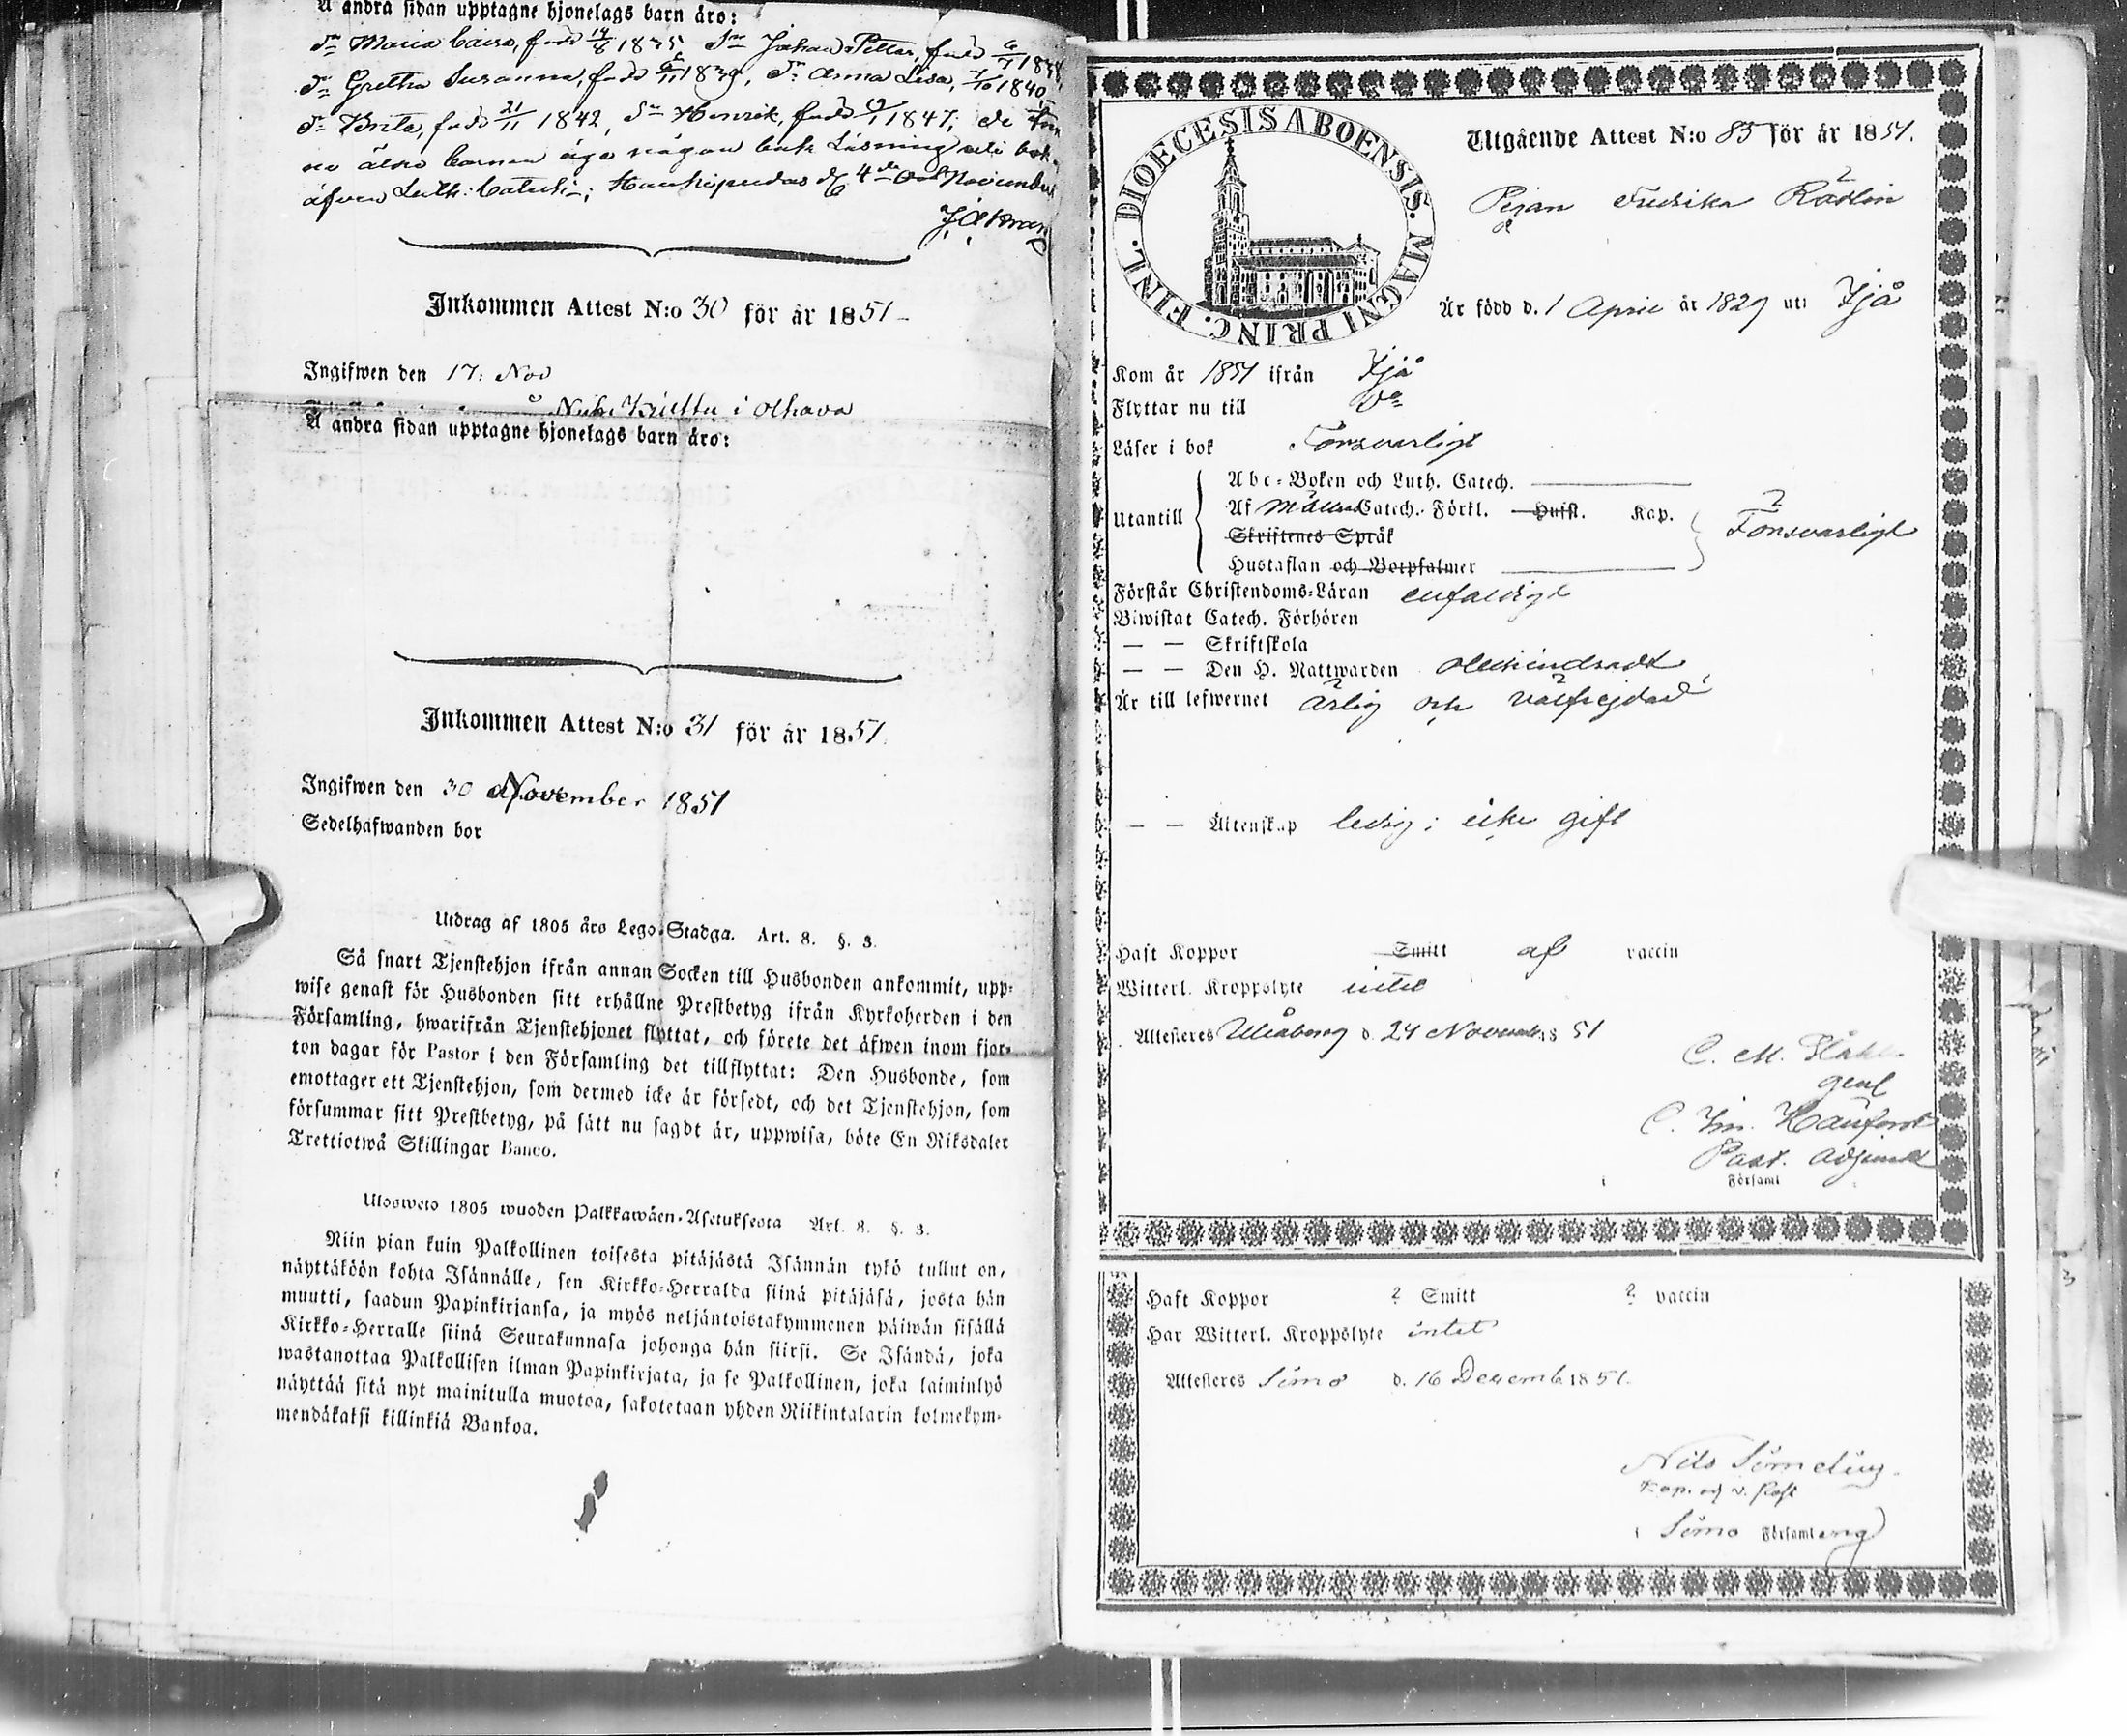 Å andra sidan upptagne hjonelags barn äro:
Dr Maria Caisa, född 14/8 1835, Sn Johan Petter, född 6/7 1838,
Dr Gretha Susanna, född 1839, Dr Anna Lisa, 7/10 1840,
Dr Brita, född 21/11 1842, Sn Henrik, född 1847; de
äldre barnen äga någon bok Läsning uti bok,
äfven Luth: Catech; Haukipudas d 4de November
Inkommen Attest N:o 30 för år 1851
Ingifwen den 17: Nov
i Olhava
Å andra sidan upptagne hjonelags barn äro:
Inkommen Attest N:o 31 för år 1851.
Ingifwen den 30 November 1851
Sedelhafwanden bor
Utdrag af 1805 års Lego-Stadga. Art. 8. §. 3.
Så snart Tjenstehjon ifrån annan Socken till Husbonden ankommit, upp-
wise genast för Husbonden sitt erhållne Prestbetyg ifrån Kyrkoherden i den
Församling, hwarifrån Tjenstehjonet flyttat, och förete det äfwen inom fjor-
ton dagar för Pastor i den Församling det tillflyttat: Den Husbonde, som
emottager ett Tjenstehjon, som dermed icke är försedt, och det Tjenstehjon, som
försummar sitt Prestbetyg, på sätt nu sagdt är, uppwisa, böte En Riksdaler
Trettiotwå Skillingar Banco.
Ulosweto 1805 wuoden Palkkawäen-Asetuksesta Art. 8. §. 3.
Niin pian kuin Palkollinen toisesta pitäjästä Isännän tykö tullut on,
näyttäköön kohta Isännälle, sen Kirkko-Herralda siinä pitäjäsä, josta hän
muutti, saadun Papinkirjansa, ja myös neljäntoistakymmenen päiwän sisällä
Kirkko-Herralle siinä Seurakunnasa johonga hän siirsi. Se Isändä, joka
wastanottaa Palkollisen ilman Papinkirjata, ja se Palkollinen, joka laiminlyö
näyttää sitä nyt mainitulla muotoa, sakotetaan yhden Riikintalarin kolmekym-
mendäkaksi killinkiä Bankoa.
DIOECESIS ABOENSIS. MAGNI PRINC. FINL.
Utgående Attest N:o 85 för år 1851.
Pigan Fredrika Rädlin
Är född d. 1 April år 1829 uti Ijå
Kom år 1851 ifrån Ijå
Flyttar nu till Do
Läser i bok Försvarligt
Abc-Boken och Luth. Catech.
Utantill Af Möllers Catech. Förkl. Hufst. Kap. Försvarligt
Skriftenes Språk
Hustaflan och Botpsalmer
Förstår Christendoms-Läran enfaldigt
Biwistat Catech. Förhören
— — Skriftskola
— — Den H. Nattwarden obehindradt
Är till lefwernet ärlig och välfrejdad
— — Äktenskap ledig; icke gift
Haft Koppor Smitt af vaccin
Witterl. Kroppslyte intet
Attesteres Uleåborg d. 24 November 1851
C. M.
Past. Adjunct
i Församl
Haft Koppor ? Smitt ? vaccin
Har Witterl. Kroppslyte intet
Attesteres Simo d. 16 Decemb 1851.
Nils Simelius
Kap. och v. Past
i Simo Församleng